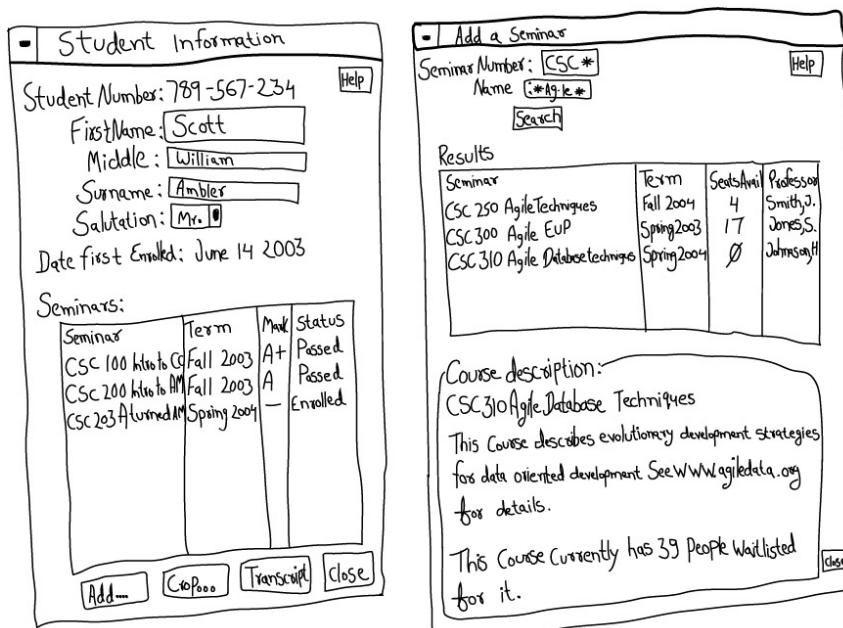 Student Information
Help
Student Number: 789-567-234
First Name: Scott
Middle: William
Surname: Ambler
Salutation: Mr.
Date first Enrolled: June 14 2003
Seminars:
Seminar Term Mark Status
CSC 100 Intro to CC Fall 2003 A+ Passed
CSC 200 Intro to AM Fall 2003 A Passed
CSC 203 Aturned AM Spring 2004 — Enrolled
Add.... Crop... Transcript Close
Add a Seminar
Seminar Number: CSC*
Help
Name :*Agile*
Search
Results
Seminar Term Seats Avail Professor
CSC 250 Agile Techniques Fall 2004 4 Smith, J.
CSC 300 Agile EUP Spring 2003 17 Jones, S.
CSC 310 Agile Database techniques Spring 2004 0 Johnson, H
Course description:
CSC 310 Agile Database Techniques
This Course describes evolutionary development strategies
for data oriented development See WWW.agiledata.org
for details.
This Course Currently has 39 People Waitlisted
for it.
Close